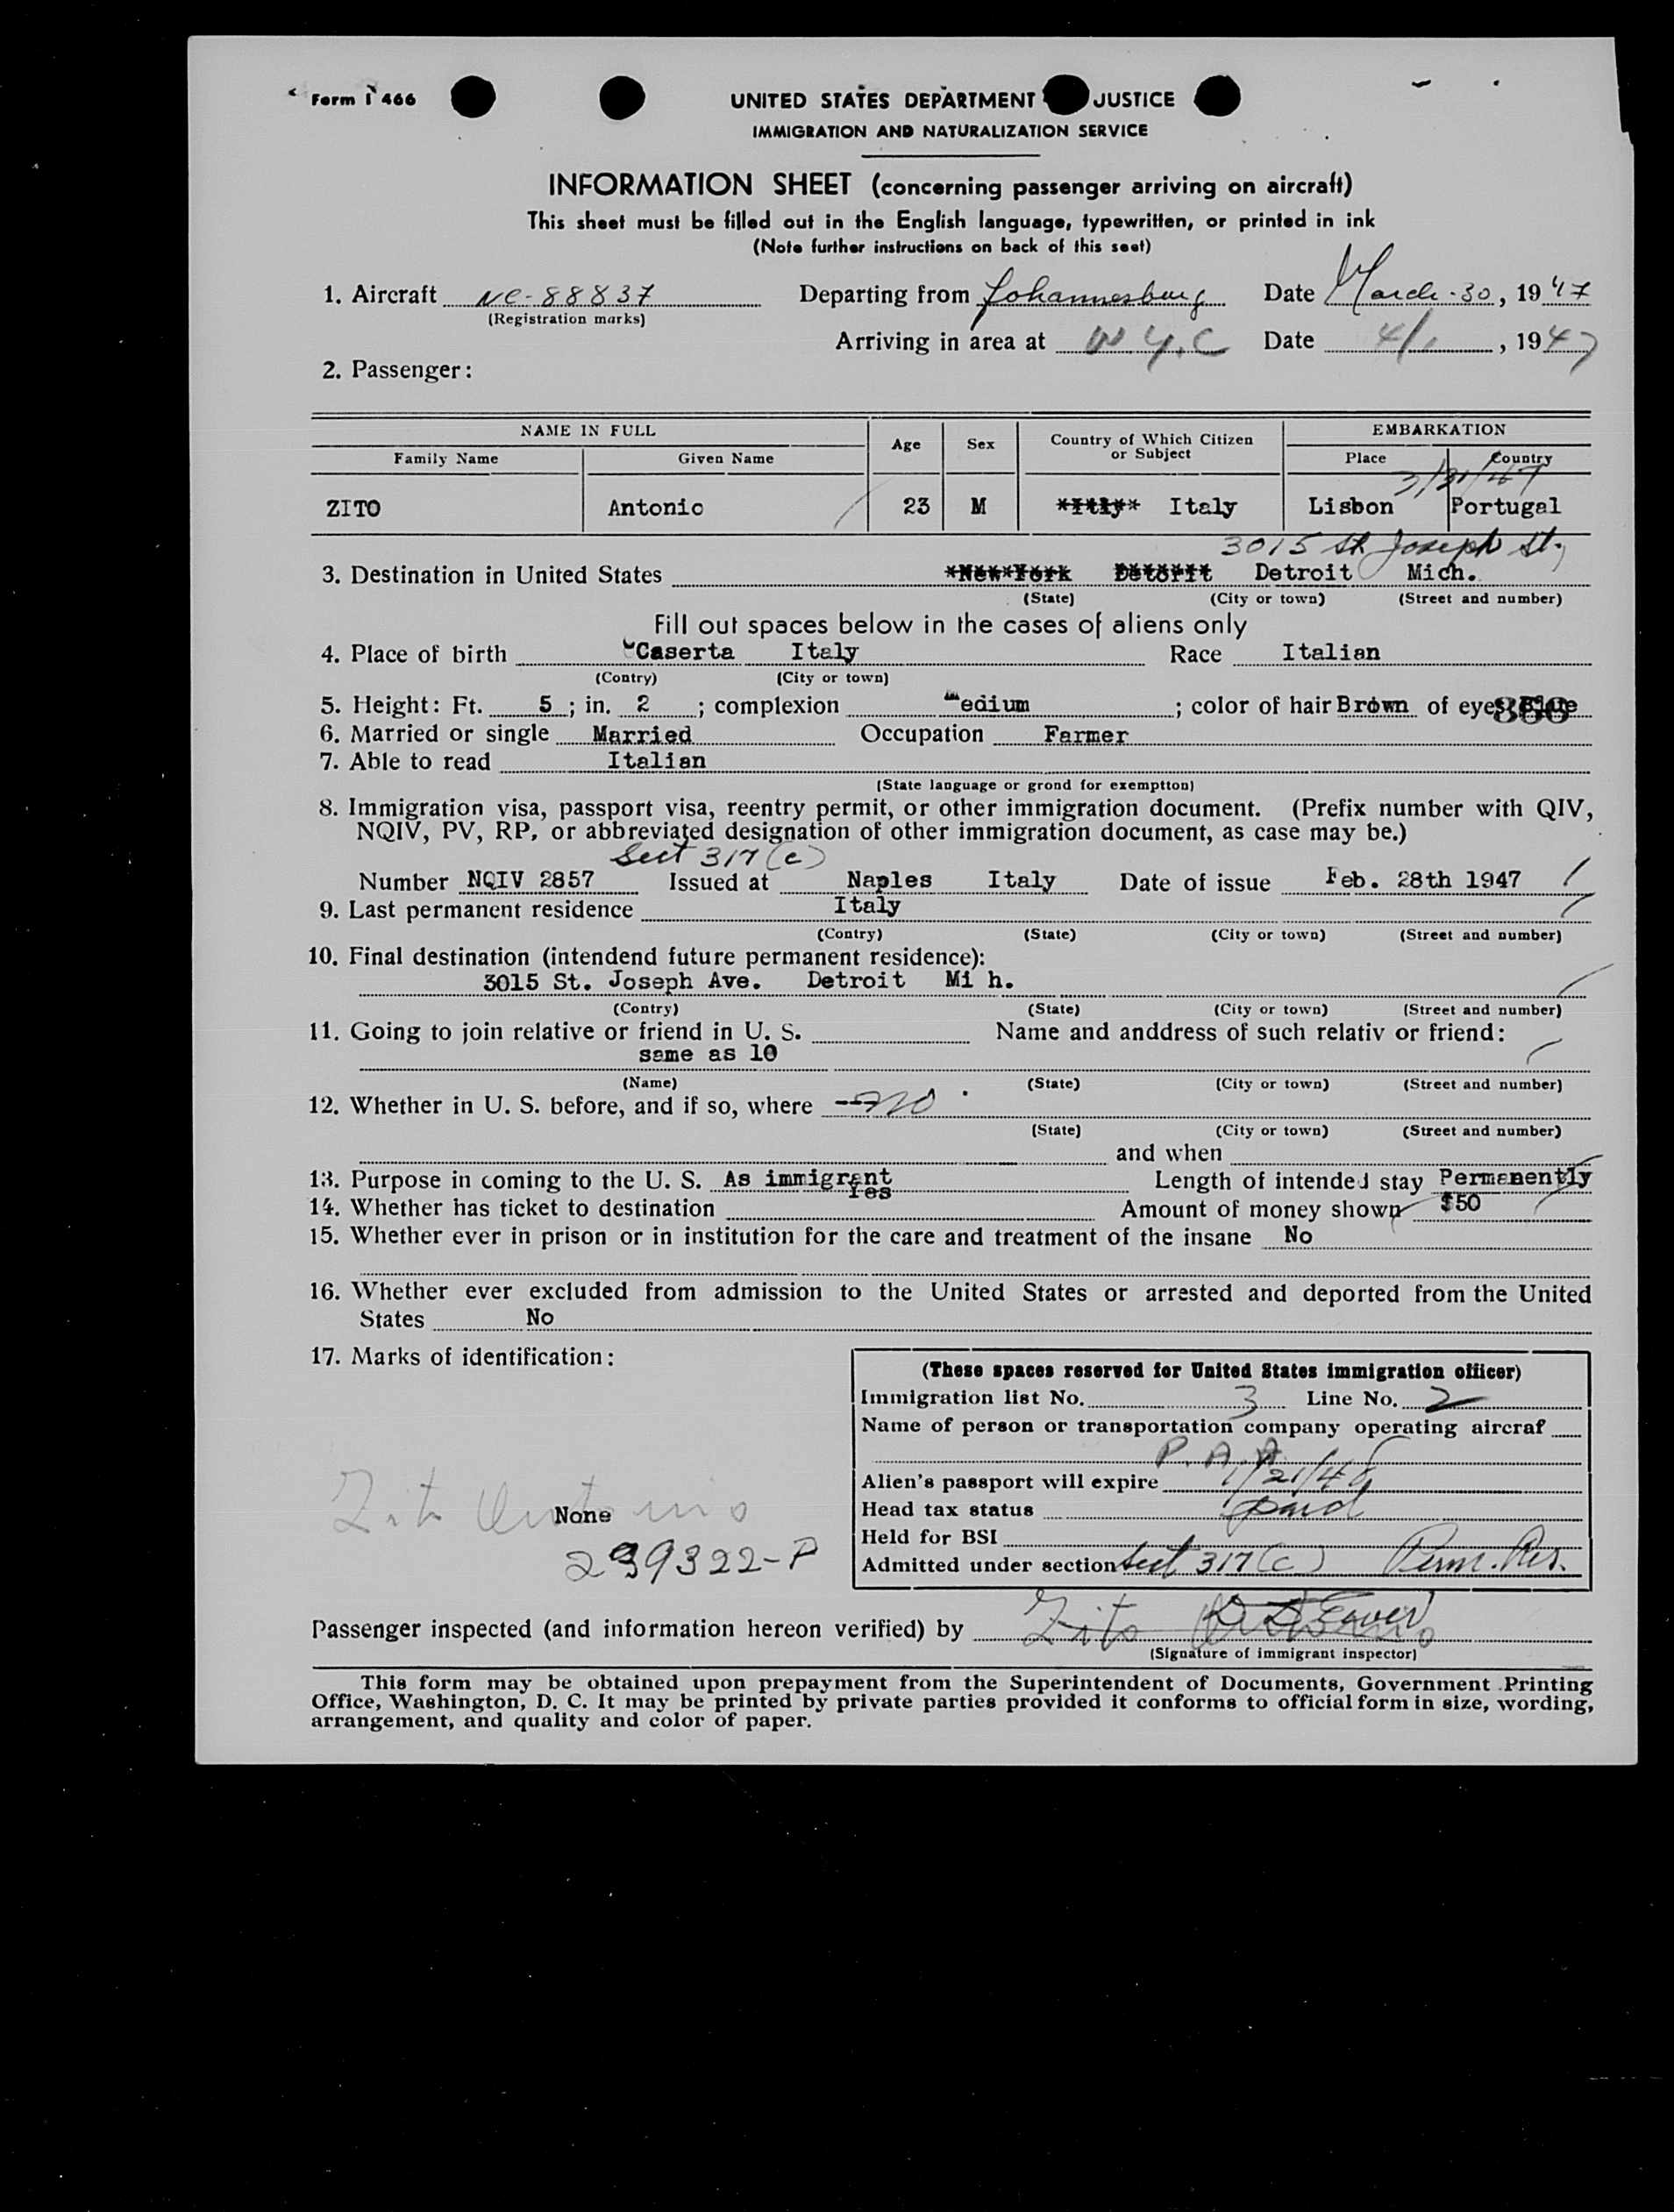 Form I 466
UNITED STATES DEPARTMENT JUSTICE
IMMIGRATION AND NATURALIZATION SERVICE
INFORMATION SHEET (concerning passenger arriving on aircraft)
This sheet must be filled out in the English language, typewritten, or printed in ink
(Note further instructions on back of this seet)
1. Aircraft NC-88837 Departing from Johannesburg Date March 30, 1947
(Registration marks)
Arriving in area at N.Y.C Date 4/1, 1947
2. Passenger:
NAME IN FULL Age Sex Country of Which Citizen or Subject EMBARKATION
Family Name Given Name Place Country
3/31/47
ZITO Antonio 23 M Italy Lisbon Portugal
3015 St Joseph St.,
3. Destination in United States *New*York Detorit Detroit Mich.
(State) (City or town) (Street and number)
Fill out spaces below in the cases of aliens only
4. Place of birth Caserta Italy Race Italian
(Contry) (City or town)
5. Height: Ft. 5; in. 2; complexion Medium; color of hair Brown of eyes Blue
366
6. Married or single Married Occupation Farmer
7. Able to read Italian
(State language or grond for exemptton)
8. Immigration visa, passport visa, reentry permit, or other immigration document. (Prefix number with QIV,
NQIV, PV, RP, or abbreviated designation of other immigration document, as case may be.)
Sect 317 (c)
Number NQIV 2857 Issued at Naples Italy Date of issue Feb. 28th 1947
9. Last permanent residence Italy
(Contry) (State) (City or town) (Street and number)
10. Final destination (intendend future permanent residence):
3015 St. Joseph Ave. Detroit Mi h.
(Contry) (State) (City or town) (Street and number)
11. Going to join relative or friend in U. S. Name and anddress of such relativ or friend:
same as 10
(Name) (State) (City or town) (Street and number)
12. Whether in U. S. before, and if so, where no
(State) (City or town) (Street and number)
and when
13. Purpose in coming to the U. S. As immigrant Length of intended stay Permanently
14. Whether has ticket to destination Yes Amount of money shown $50
15. Whether ever in prison or in institution for the care and treatment of the insane No
16. Whether ever excluded from admission to the United States or arrested and deported from the United
States No
17. Marks of identification:
(These spaces reserved for United States immigration officer)
Immigration list No. 3 Line No. 2
Name of person or transportation company operating aircraf
P. A. A.
Alien's passport will expire 1/21/48
Head tax status paid
Held for BSI
Admitted under section Sect 317 (c) Perm. Res.
Zito Antonio
None
239322-P
Passenger inspected (and information hereon verified) by Zito
(Signature of immigrant inspector)
This form may be obtained upon prepayment from the Superintendent of Documents, Government Printing
Office, Washington, D. C. It may be printed by private parties provided it conforms to official form in size, wording,
arrangement, and quality and color of paper.